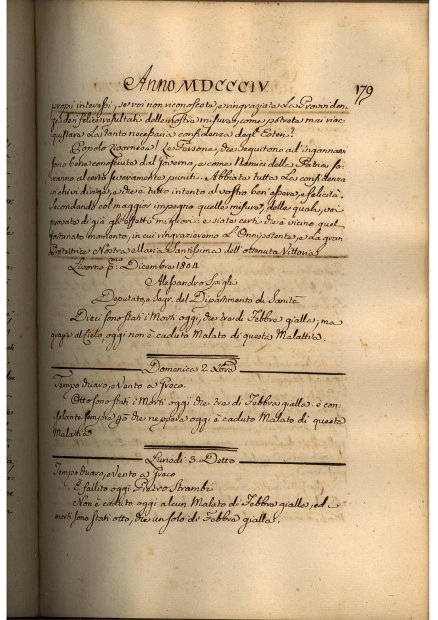 Anno MDCCCIV. 179
proprj interessi, se voi non riconoscete, e ringraziate La Providen-
za dei felici resultati delle nostre misure, come potrete mai riac-
quistare La tanto necessaria confidenza degl'Esteri?
Popolo Livornese! Le Persone, che seguitono ad ingannarvi
sono ben conosciute dal Governo, e come Nemici della Patria sa-
ranno al certo severamente puniti. Abbiate tutta La confidenza
in chi vi dirige, e che è tutto intento al vostro ben'essere, e felicità.
Secondando col maggior impegno quelle misure, delle quali, voi
provate di già gl'effetti migliori: e siate certi che è vicino quel
fortunato momento, in cui ringrazieremo L'Onnipotente, e La gran
Protettrice Nostra Maria Santissima dell'ottenuta Vittoria.
Livorno p.mo Dicembre 1804
Alessandro Spighi
Deputato, e Segr. del Dipartimento di Sanità
Dieci sono stati i Morti oggi, che tre di Febbra gialla; ma
grazie al Cielo, oggi non è caduto Malato di questa Malattia.
Domenica 2. Xbre
Tempo vario, e Vento a
Otto sono stati i Morti oggi che tre di Febbra gialla: è con-
solante sempre più che neppure oggi è caduto Malato di questa
Malattia
Lunedì 3. Detto
Tempo vario, e Vento a
È fallito oggi Pietro Strambi
Non è caduto oggi alcun Malato di Febbra gialla, ed i
morti sono stati otto, che un solo di Febbra gialla.